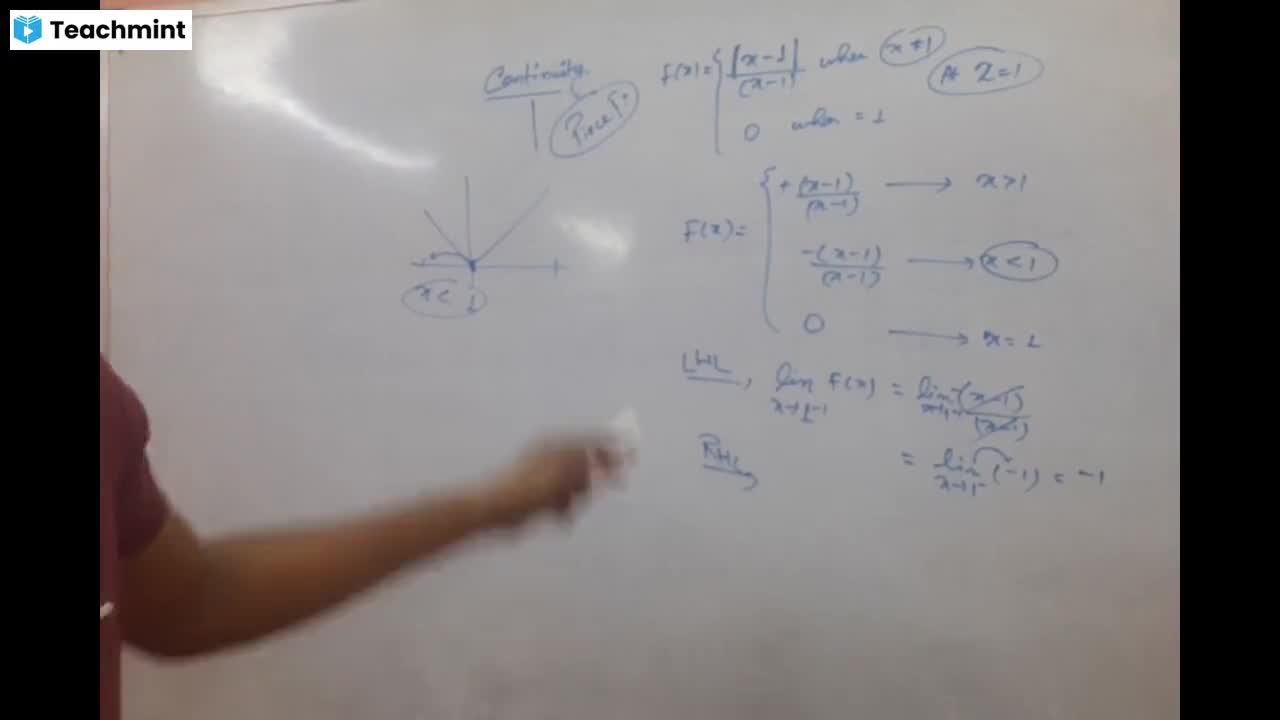 Teachmint
Continuity
Piece fⁿ
f(x) = { |x-1| / (x-1) when x ≠ 1
At x=1
0 when = 1
F(x) = { +(x-1) / (x-1) → x>1
-(x-1) / (x-1) → x<1
0 → x=1
x< 1
LHL, lim x→1- F(x) = lim x→1- -(x-1) / (x-1)
RHL
= lim x→1- (-1) = -1